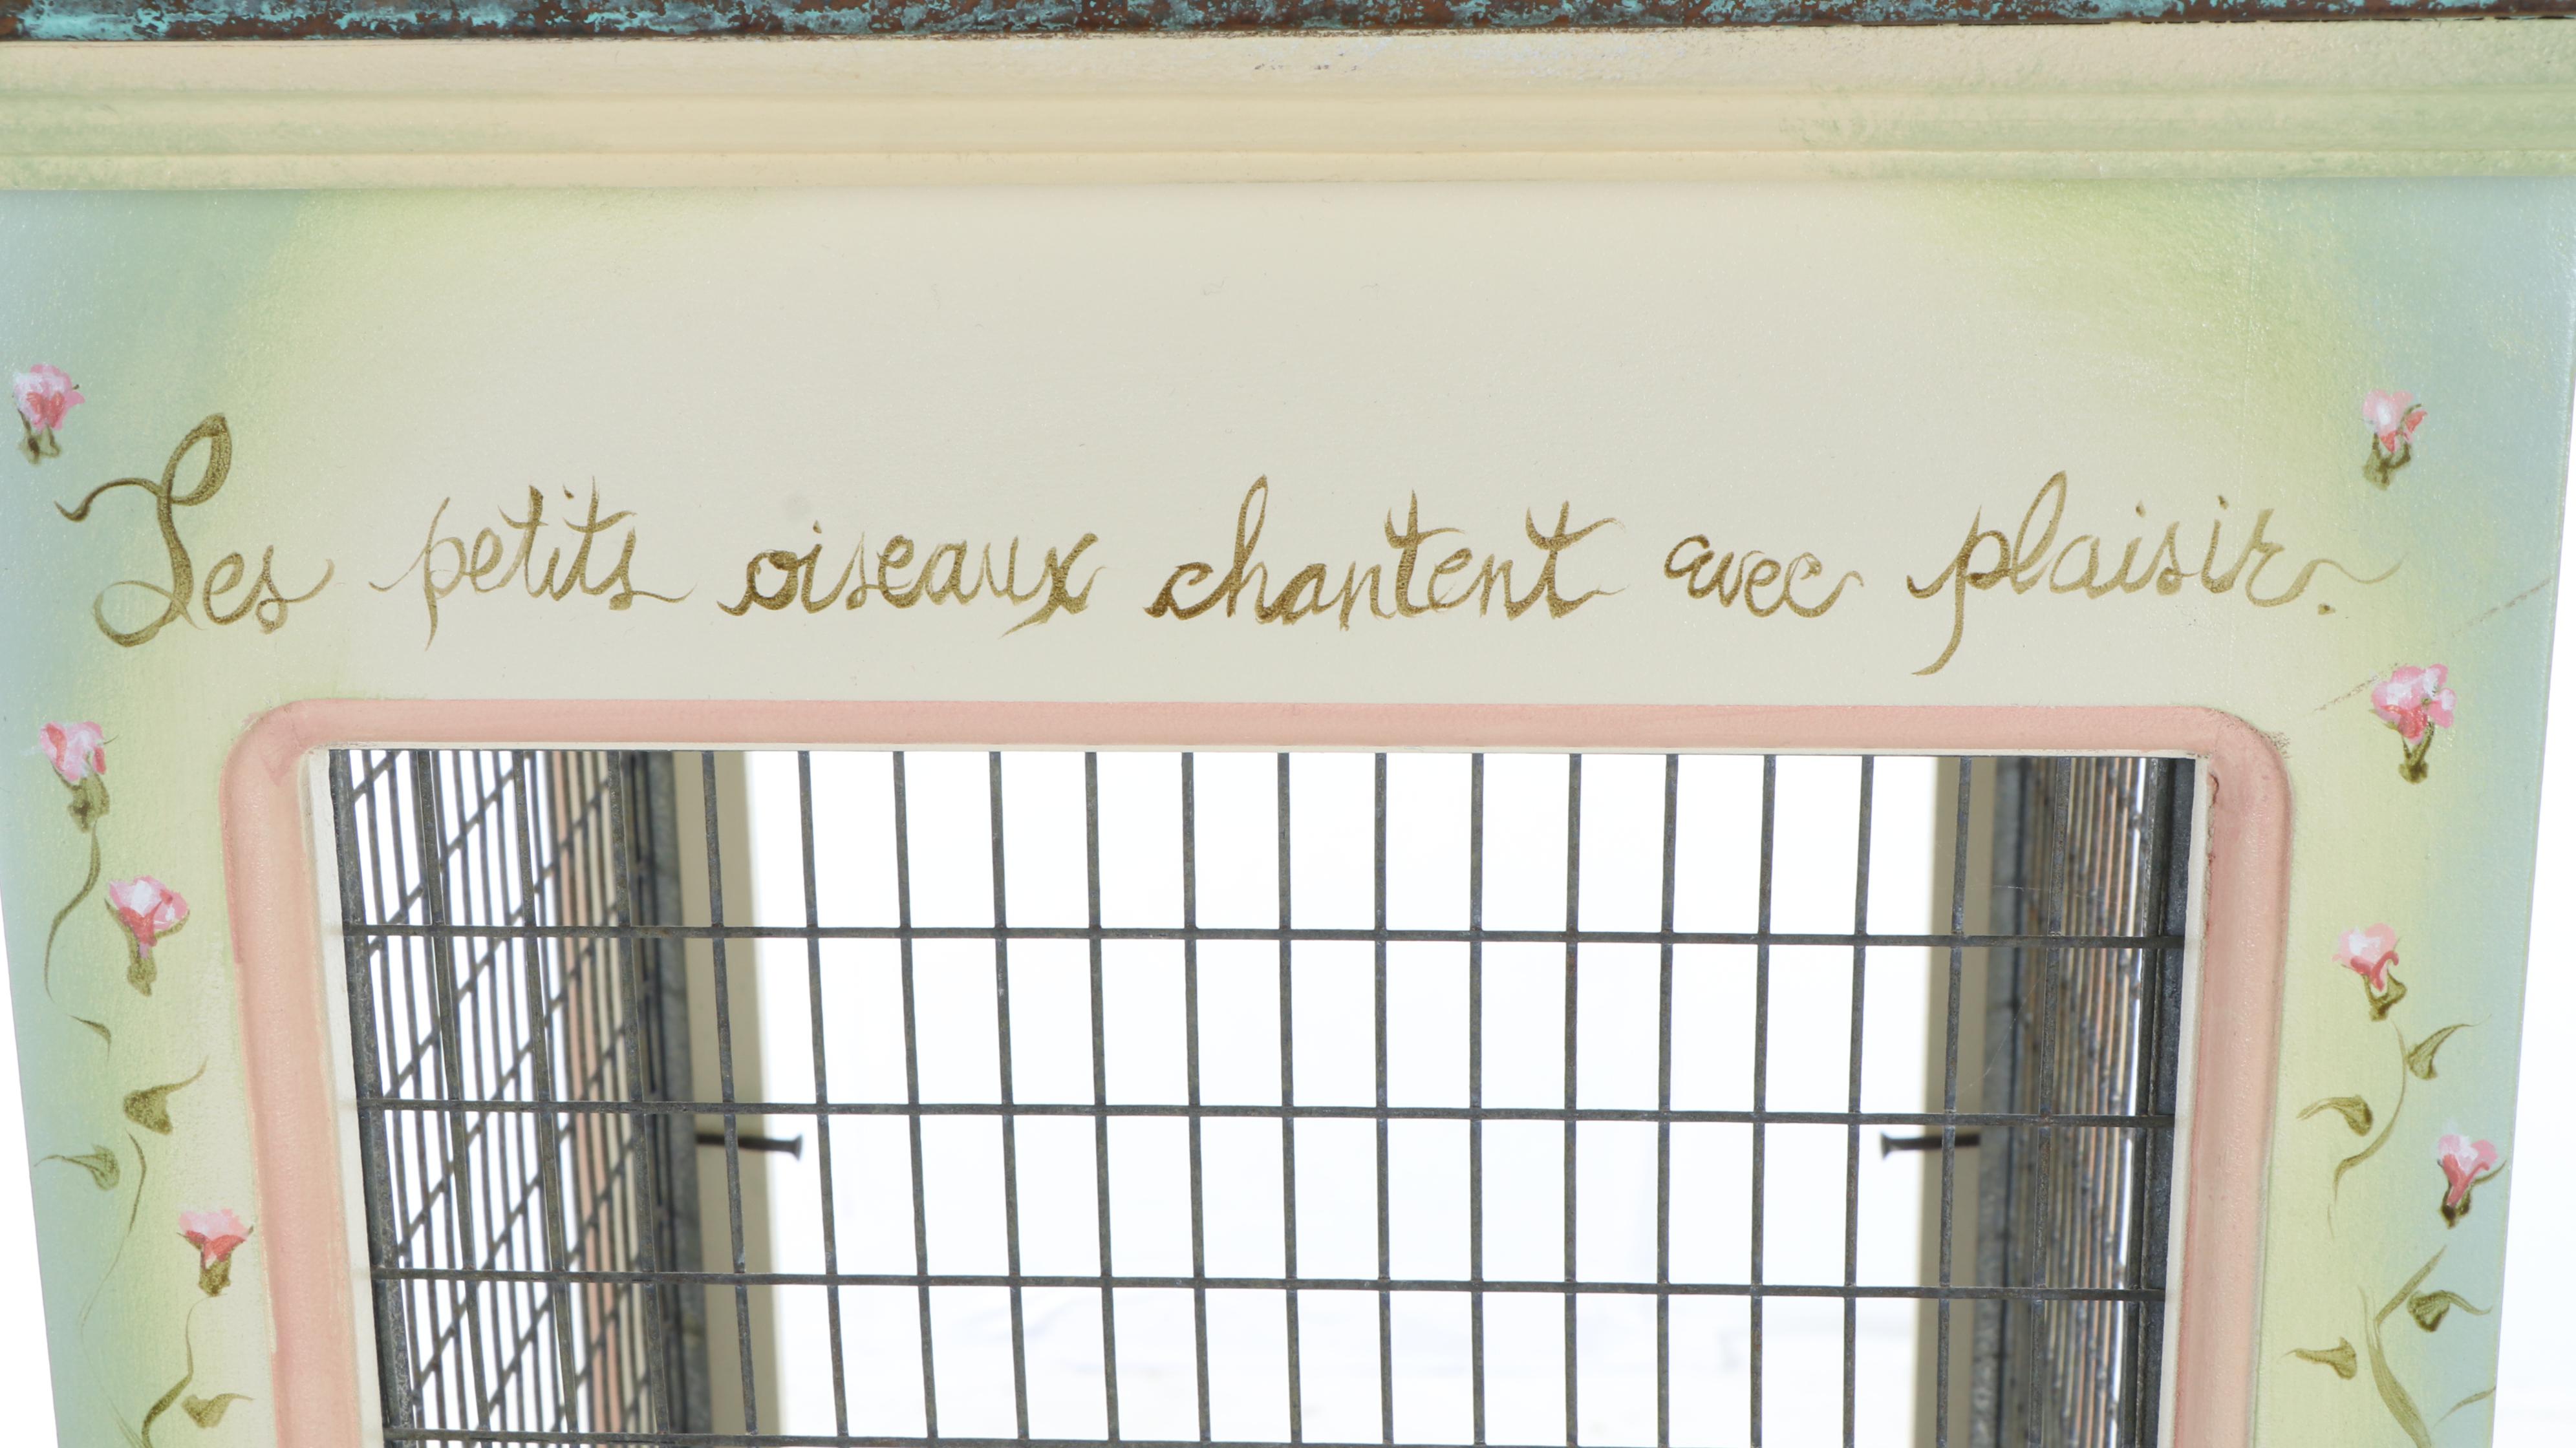 Les petits oiseaux chantent avec plaisir.